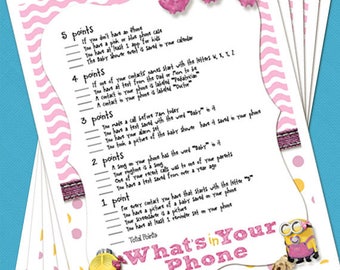 5 points
If you don't have an iPhone
You have a pink or blue phone case
You have at least 1 app for kids
The baby shower event is saved in your calendar
4 points
If one of your contacts' names start with the letters W, X, Y, Z
You have a text from the Dad or Mom to be
A contact in your phone is labeled "Pediatrician"
A contact in your phone is labeled "Doctor"
3 points
You made a call before 7am today
You have a text saved with the word "Baby" in it
You have your alarm set
You took a picture of the baby shower have it saved in your phone
2 points
A song on your phone has the word "Baby" in it
Your ringtone is a song
One of your recent calls was to one of your parents
You have a text saved from over a year ago
1 point
For every contact you have that starts with the letter "B"
You have a picture of a baby saved in your phone
Your screensaver is a picture
You have at least 1 reminder set on your phone
Total Points:
What's in Your
Phone